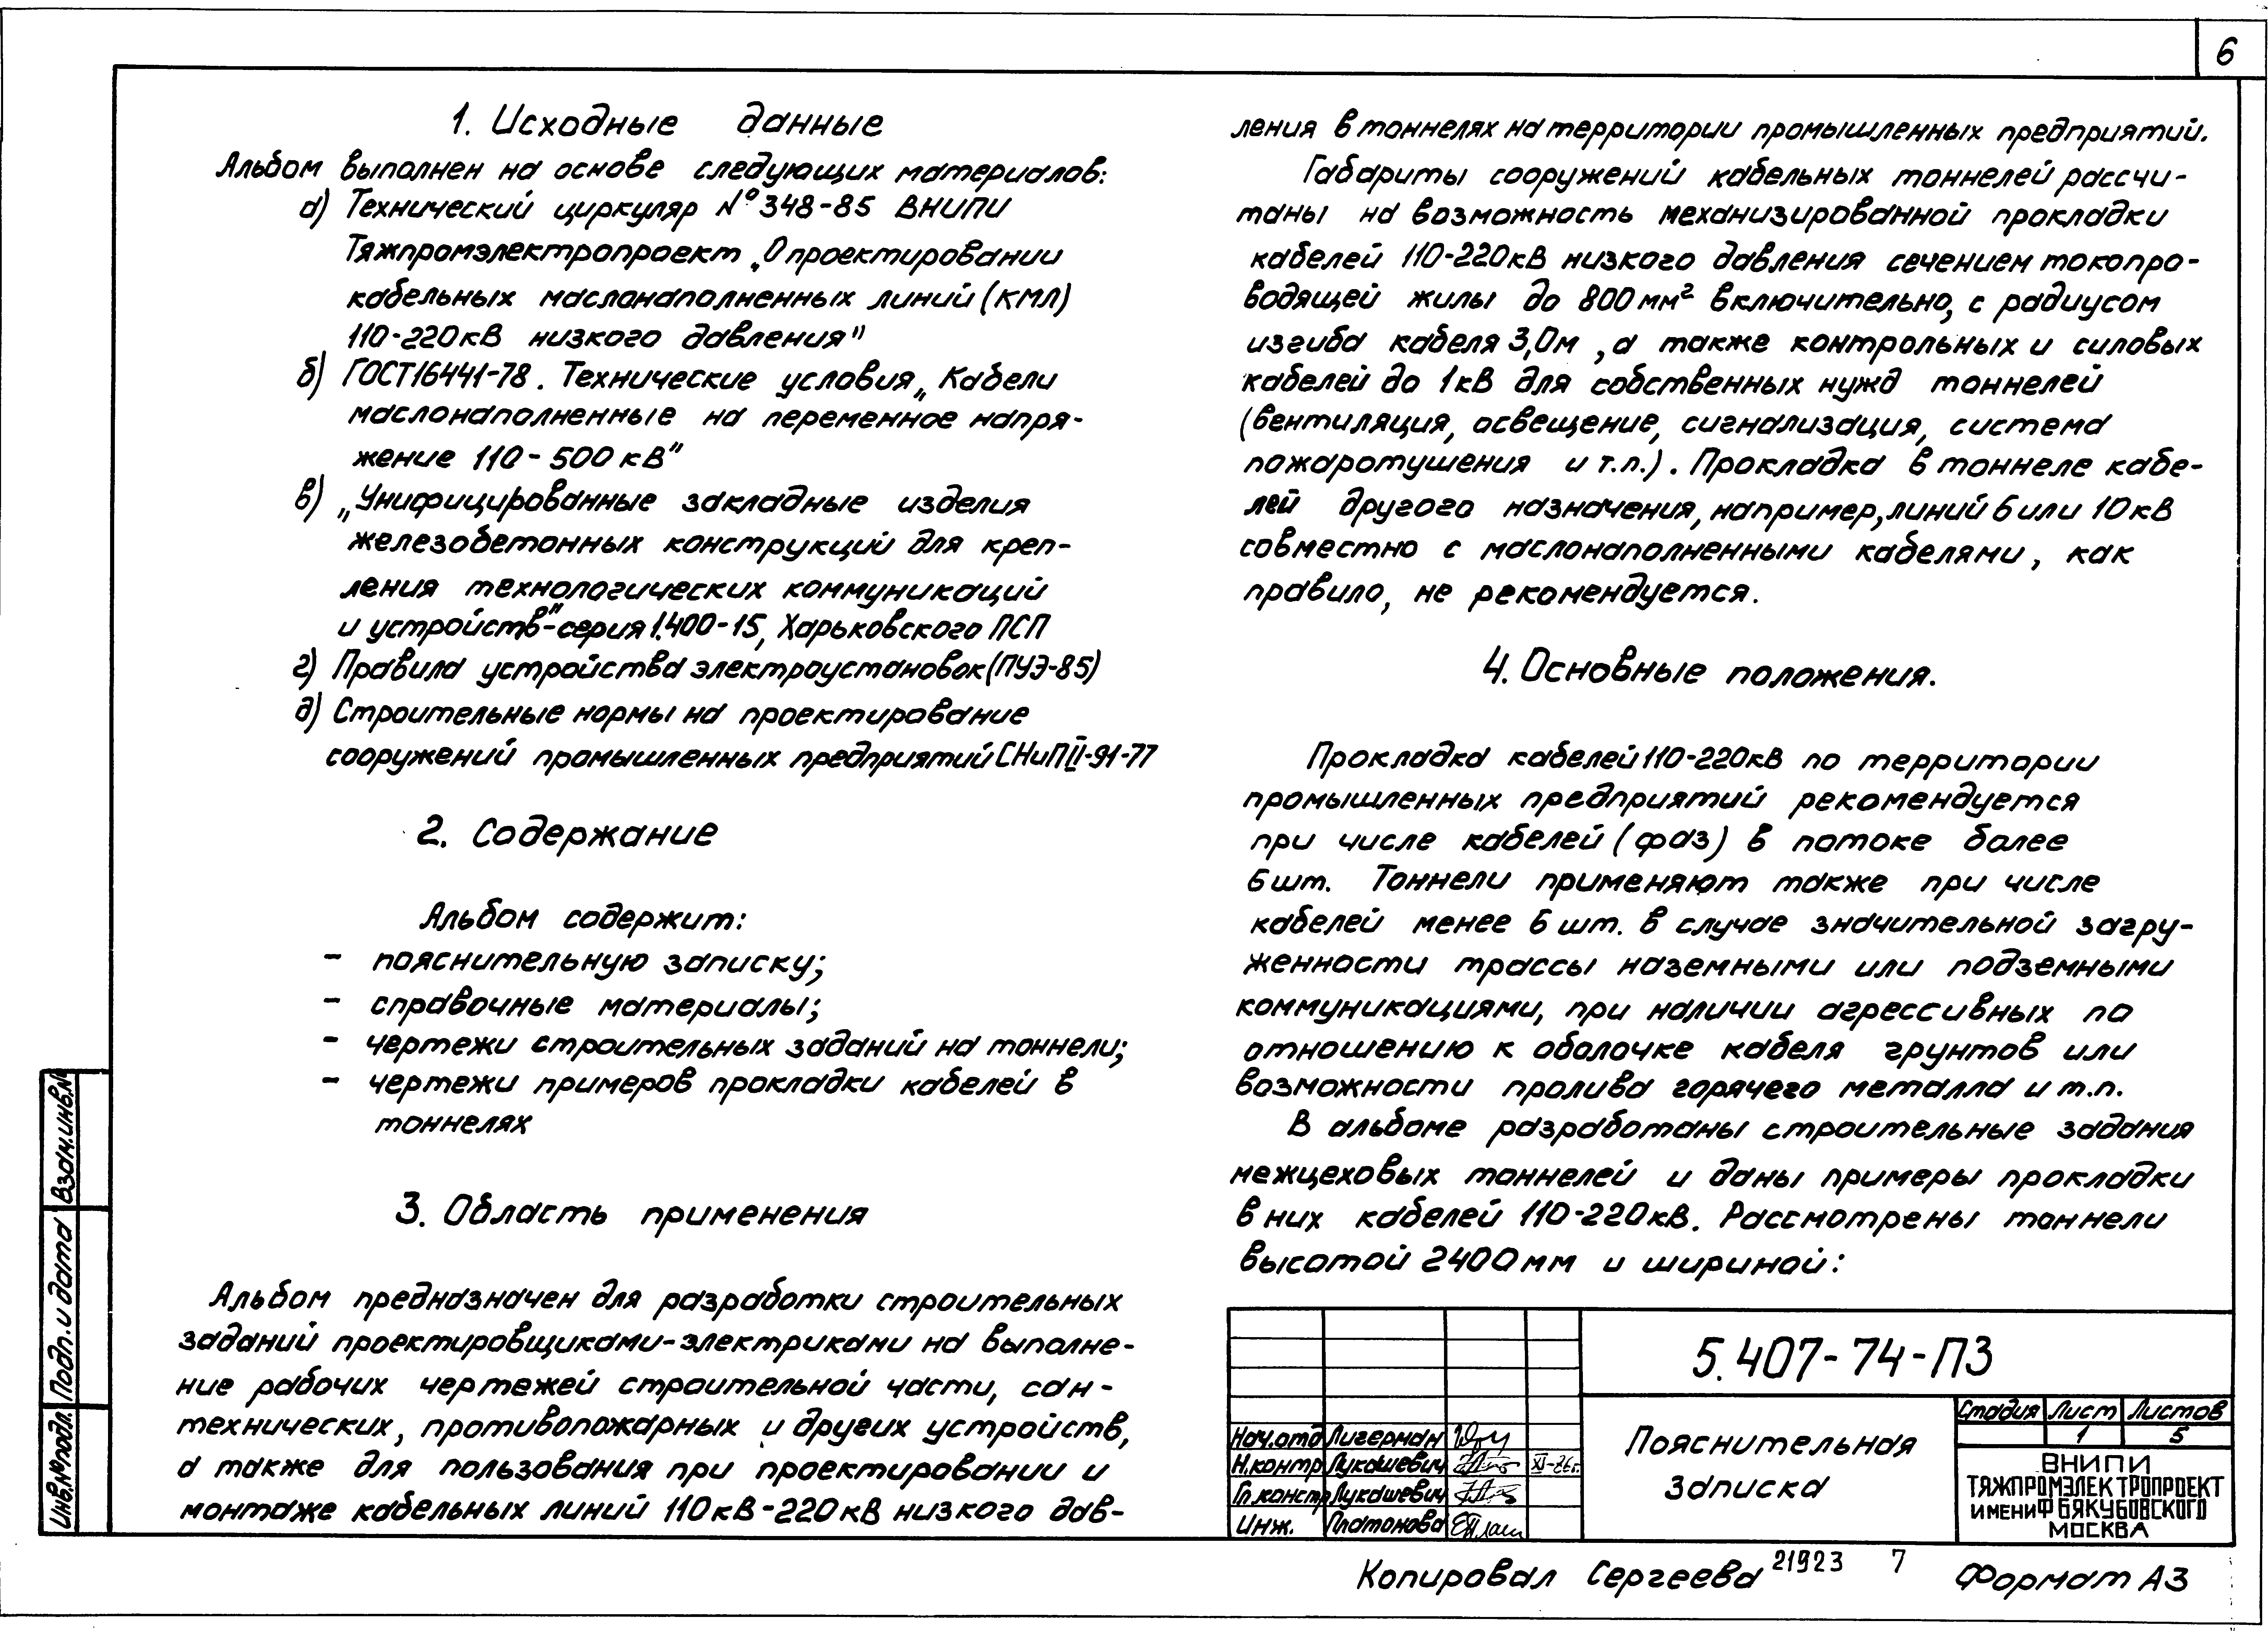 6
1. Исходные данные
Альбом выполнен на основе следующих материалов:
а) Технический циркуляр №348-85 ВНИПИ
Тяжпромэлектропроект „О проектировании
кабельных маслонаполненных линий (КМЛ)
110-220кВ низкого давления"
б) ГОСТ16441-78. Технические условия „Кабели
маслонаполненные на переменное напря-
жение 110-500 кВ"
в) „Унифицированные закладные изделия
железобетонных конструкций для креп-
ления технологических коммуникаций
и устройств"-серия 1.400-15, Харьковского ПСП
г) Правила устройства электроустановок (ПУЭ-85)
д) Строительные нормы на проектирование
сооружений промышленных предприятий СНиП II-91-77
2. Содержание
Альбом содержит:
- пояснительную записку;
- справочные материалы;
- чертежи строительных заданий на тоннели;
- чертежи примеров прокладки кабелей в
тоннелях
3. Область применения
Альбом предназначен для разработки строительных
заданий проектировщиками-электриками на выполне-
ние рабочих чертежей строительной части, сан-
технических, противопожарных и других устройств,
а также для пользования при проектировании и
монтаже кабельных линий 110кВ-220кВ низкого дав-
ления в тоннелях на территории промышленных предприятий.
Габариты сооружений кабельных тоннелей рассчи-
таны на возможность механизированной прокладки
кабелей 110-220кВ низкого давления сечением токопро-
водящей жилы до 800 мм² включительно, с радиусом
изгиба кабеля 3,0м, а также контрольных и силовых
кабелей до 1кВ для собственных нужд тоннелей
(вентиляция, освещение, сигнализация, система
пожаротушения и т.п.). Прокладка в тоннеле кабе-
лей другого назначения, например, линий 6 или 10кВ
совместно с маслонаполненными кабелями, как
правило, не рекомендуется.
4. Основные положения.
Прокладка кабелей 110-220кВ по территории
промышленных предприятий рекомендуется
при числе кабелей (фаз) в потоке более
6шт. Тоннели применяют также при числе
кабелей менее 6 шт. в случае значительной загру-
женности трассы наземными или подземными
коммуникациями, при наличии агрессивных по
отношению к оболочке кабеля грунтов или
возможности пролива горячего металла и т.п.
В альбоме разработаны строительные задания
межцеховых тоннелей и даны примеры прокладки
в них кабелей 110-220кВ. Рассмотрены тоннели
высотой 2400мм и шириной:
5.407-74-ПЗ
Пояснительная
записка
Стадия Лист Листов
1 5
ВНИПИ
ТЯЖПРОМЭЛЕКТРОПРОЕКТ
ИМЕНИ Ф БЯКУБОВСКОГО
МОСКВА
Нач.отд Лигерман
Н.контр Лукашевич XI-86г.
Гл.констр Лукашевич
Инж. Платонова
Взам.инв.№
Подп. и дата
Инв.№подл.
Копировал Сергеева 21923 7 Формат А3